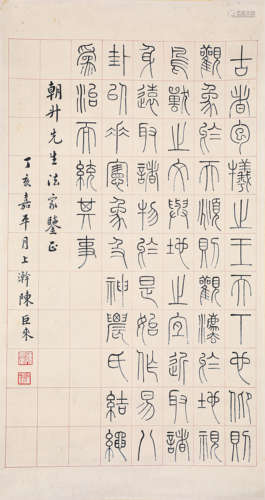 古者犧之王天下也仰則
觀象於天頫則觀灋於地視
鳥獸之文與地之宜近取諸
身遠取諸物於是始作易八
卦以垂憲象及神農氏結繩
爲治而統其事
朝升先生法家鑒正
丁亥嘉平月上澣陳巨來